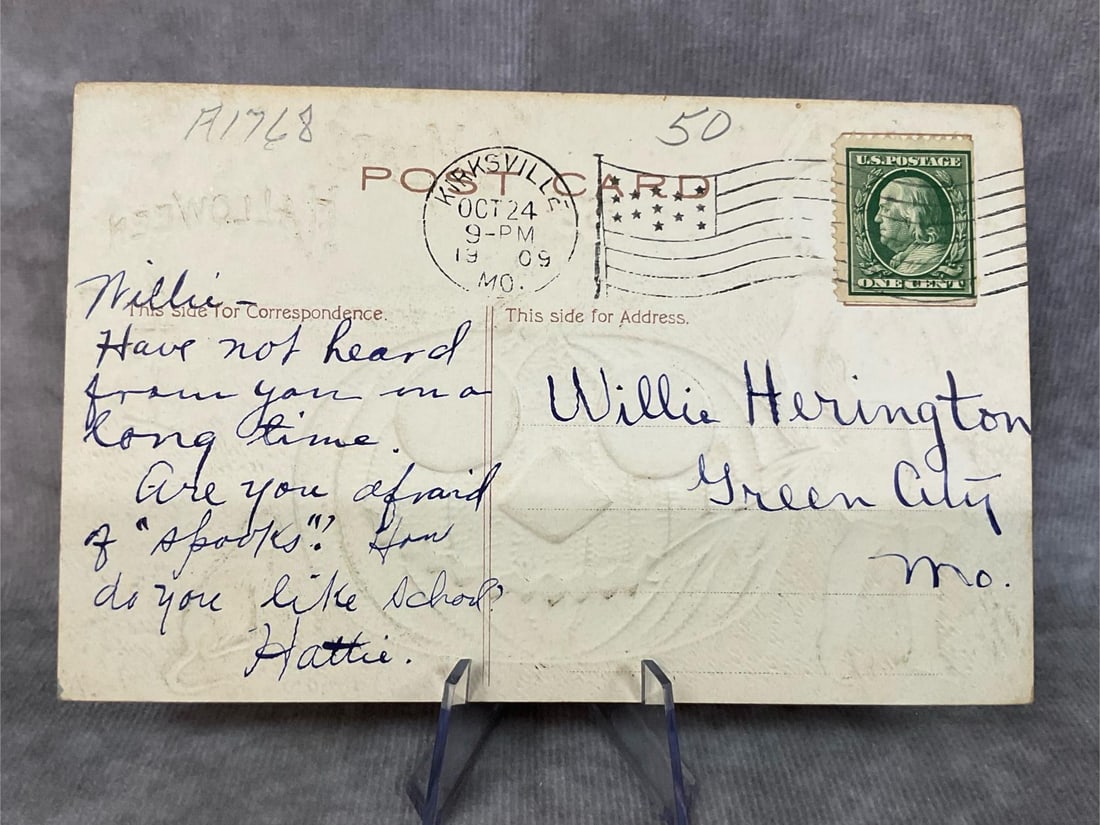 A1768
50
POST CARD
KIRKSVILLE
OCT 24
9-PM
19 09
MO.
U.S. POSTAGE
ONE CENT
HALLOWEEN
Willie -
This side for Correspondence.
Have not heard
from you in a
long time.
Are you afraid
of "spooks"? How
do you like school?
Hattie.
This side for Address.
Willie Herington
Green City
Mo.